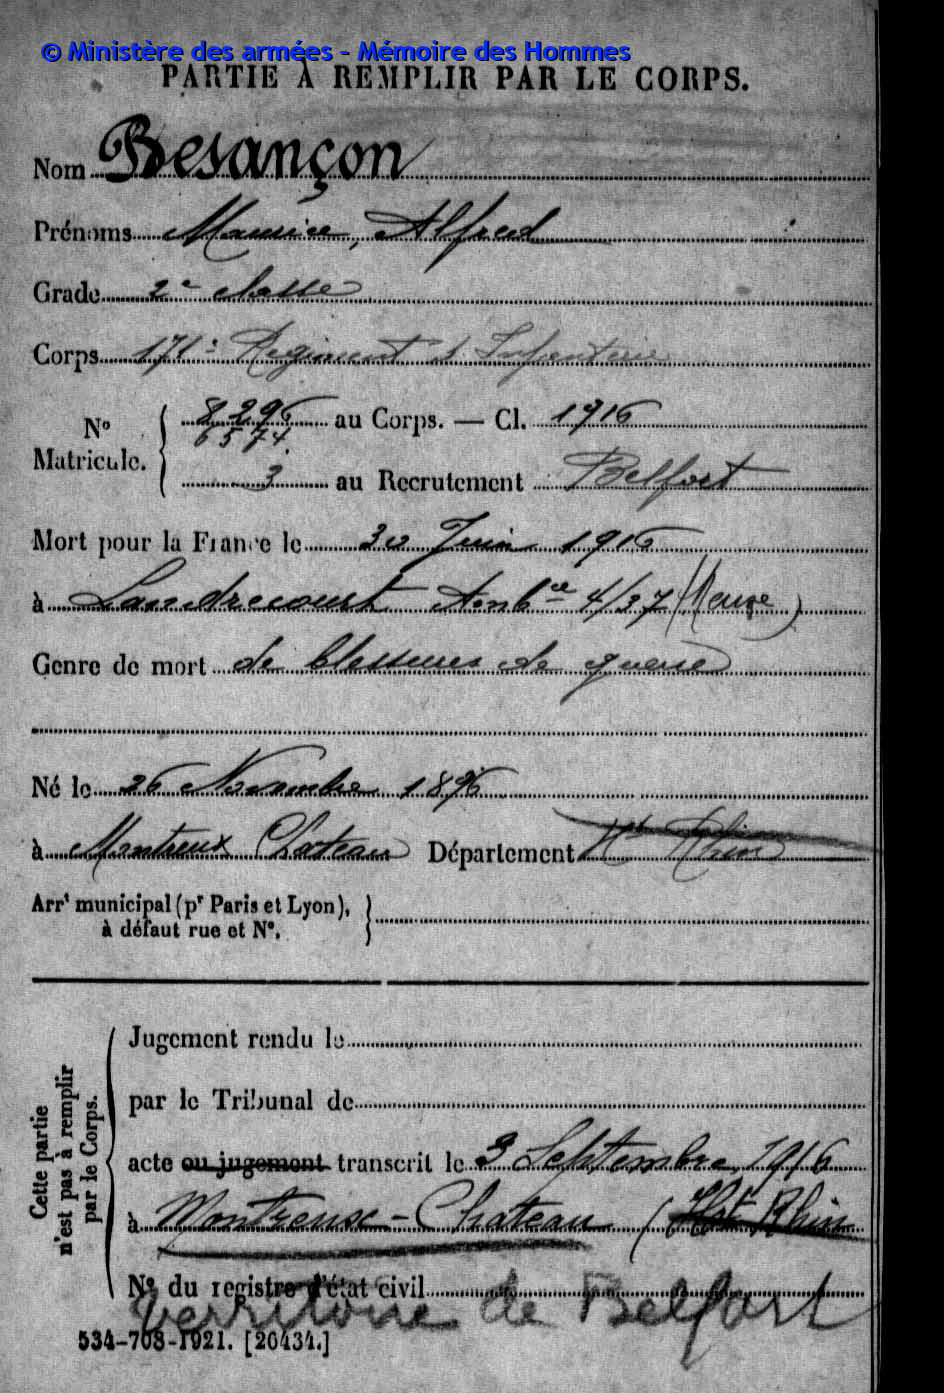 © Ministère des armées - Mémoire des Hommes
PARTIE À REMPLIR PAR LE CORPS.
Nom Besançon
Prénoms Maurice, Alfred
Grade 2e classe
Corps 171e Régiment d'Infanterie
N° Matricule. 8296 au Corps. — Cl. 1916
6574.
3 au Recrutement Belfort
Mort pour la France le 30 Juin 1916
à Landrecourt Ambce 4/37 (Meuse)
Genre de mort de blessures de guerre
Né le 26 Novembre 1896
à Montreux Château Département Ht Rhin
Arrt municipal (pr Paris et Lyon),
à défaut rue et N°.
Cette partie
n'est pas à remplir
par le Corps.
Jugement rendu le
par le Tribunal de
acte ou jugement transcrit le 3 Septembre 1916
à Montreux-Château (Ht Rhin
N° du registre d'état civil
Territoire de Belfort
534-708-1921. [26434.]